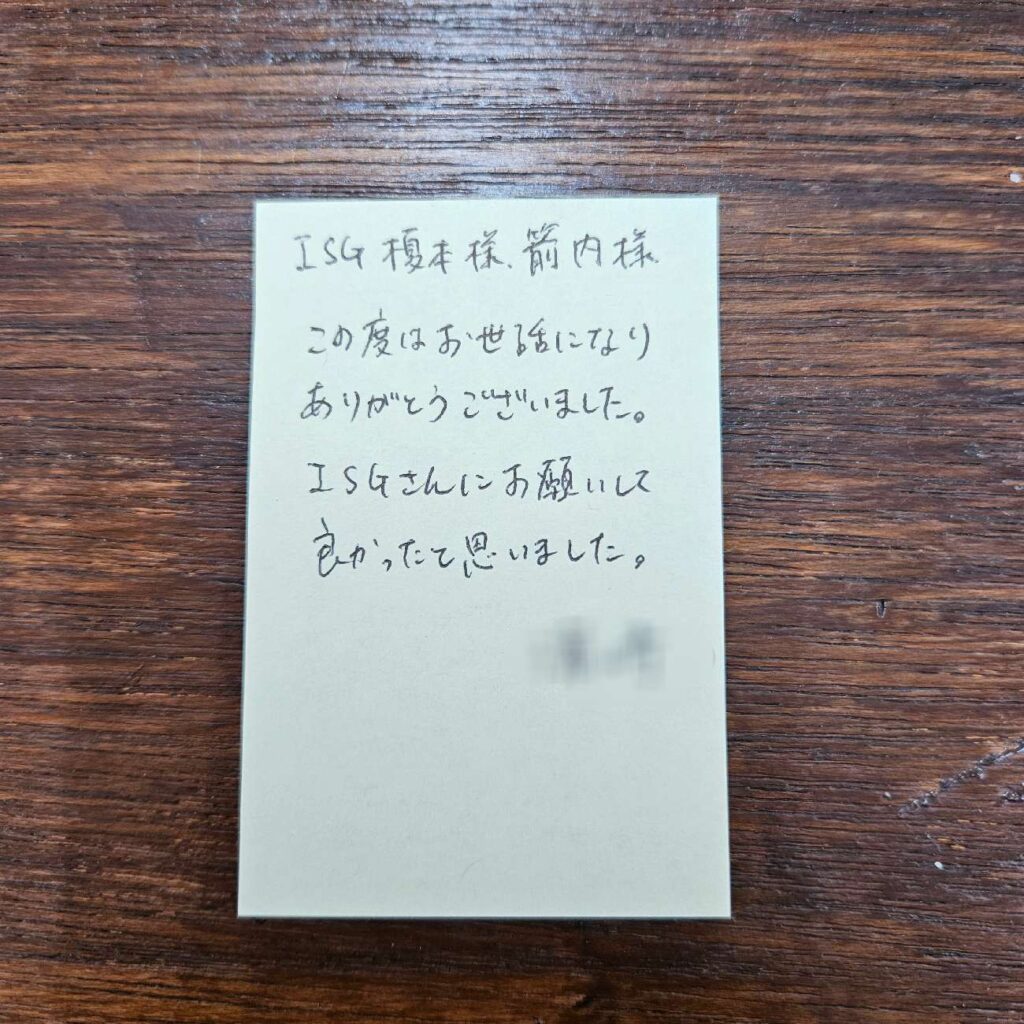 ISG 榎本様、箭内様
この度はお世話になり
ありがとうございました。
ISGさんにお願いして
良かったと思いました。